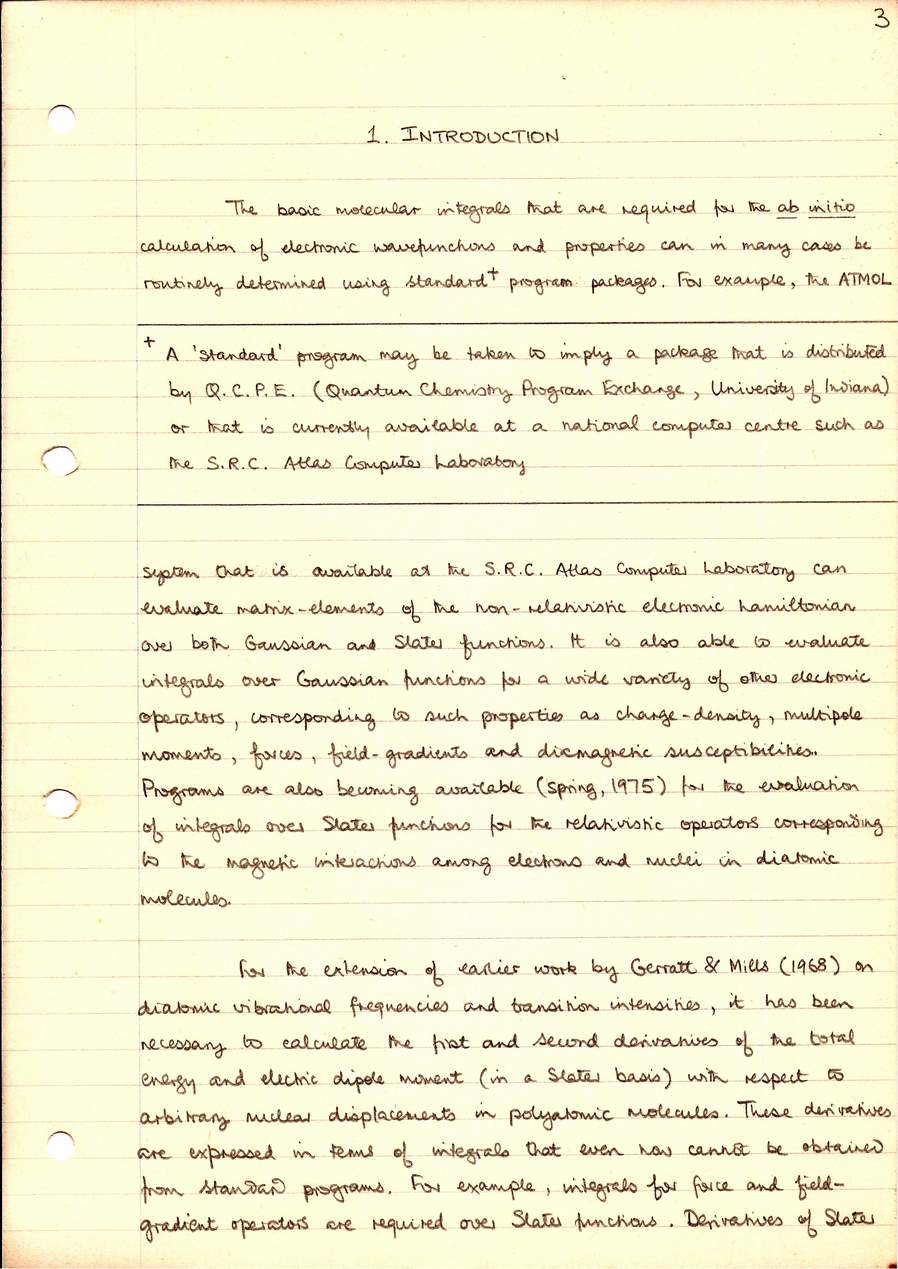 3
1. INTRODUCTION
The basic molecular integrals that are required for the ab initio
calculation of electronic wavefunctions and properties can in many cases be
routinely determined using standard† program packages. For example, the ATMOL
† A 'standard' program may be taken to imply a package that is distributed
by Q.C.P.E. (Quantum Chemistry Program Exchange, University of Indiana)
or that is currently available at a national computer centre such as
the S.R.C. Atlas Computer Laboratory
system that is available at the S.R.C. Atlas Computer Laboratory can
evaluate matrix-elements of the non-relativistic electronic hamiltonian
over both Gaussian and Slater functions. It is also able to evaluate
integrals over Gaussian functions for a wide variety of other electronic
operators, corresponding to such properties as charge-density, multipole
moments, forces, field-gradients and diamagnetic susceptibilities.
Programs are also becoming available (Spring, 1975) for the evaluation
of integrals over Slater functions for the relativistic operators corresponding
to the magnetic interactions among electrons and nuclei in diatomic
molecules.
For the extension of earlier work by Gerratt & Mills (1968) on
diatomic vibrational frequencies and transition intensities, it has been
necessary to calculate the first and second derivatives of the total
energy and electric dipole moment (in a Slater basis) with respect to
arbitrary nuclear displacements in polyatomic molecules. These derivatives
are expressed in terms of integrals that even now cannot be obtained
from standard programs. For example, integrals for force and field-
gradient operators are required over Slater functions. Derivatives of Slater